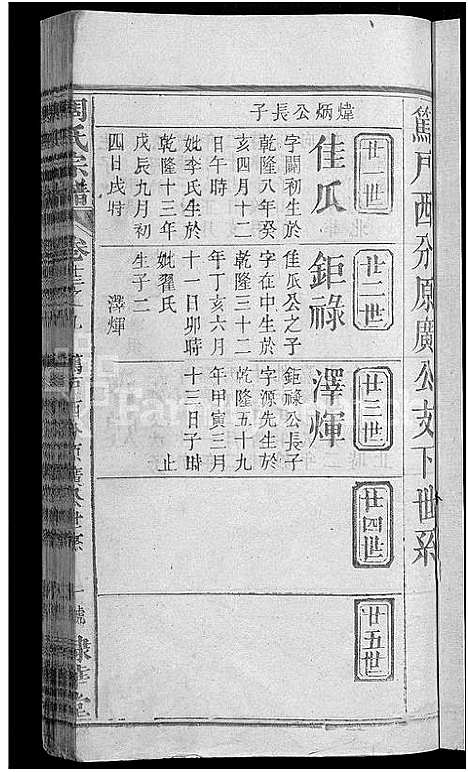 篤戶西分原廣公支下世系
廿一世
煒炳公長子
佳瓜
字闢初生於
乾隆八年癸
亥四月十二
日午時
妣李氏生於
乾隆十三年
戊辰九月初
四日戌時
廿二世
鉅祿
佳瓜公之子
字在中生於
乾隆三十二
年丁亥六月
十一日卯時
妣翟氏
生子二
澤煇
廿三世
澤煇
鉅祿公長子
字源先生於
乾隆五十九
年甲寅三月
十三日子時
止
廿四世
廿五世
周氏宗譜